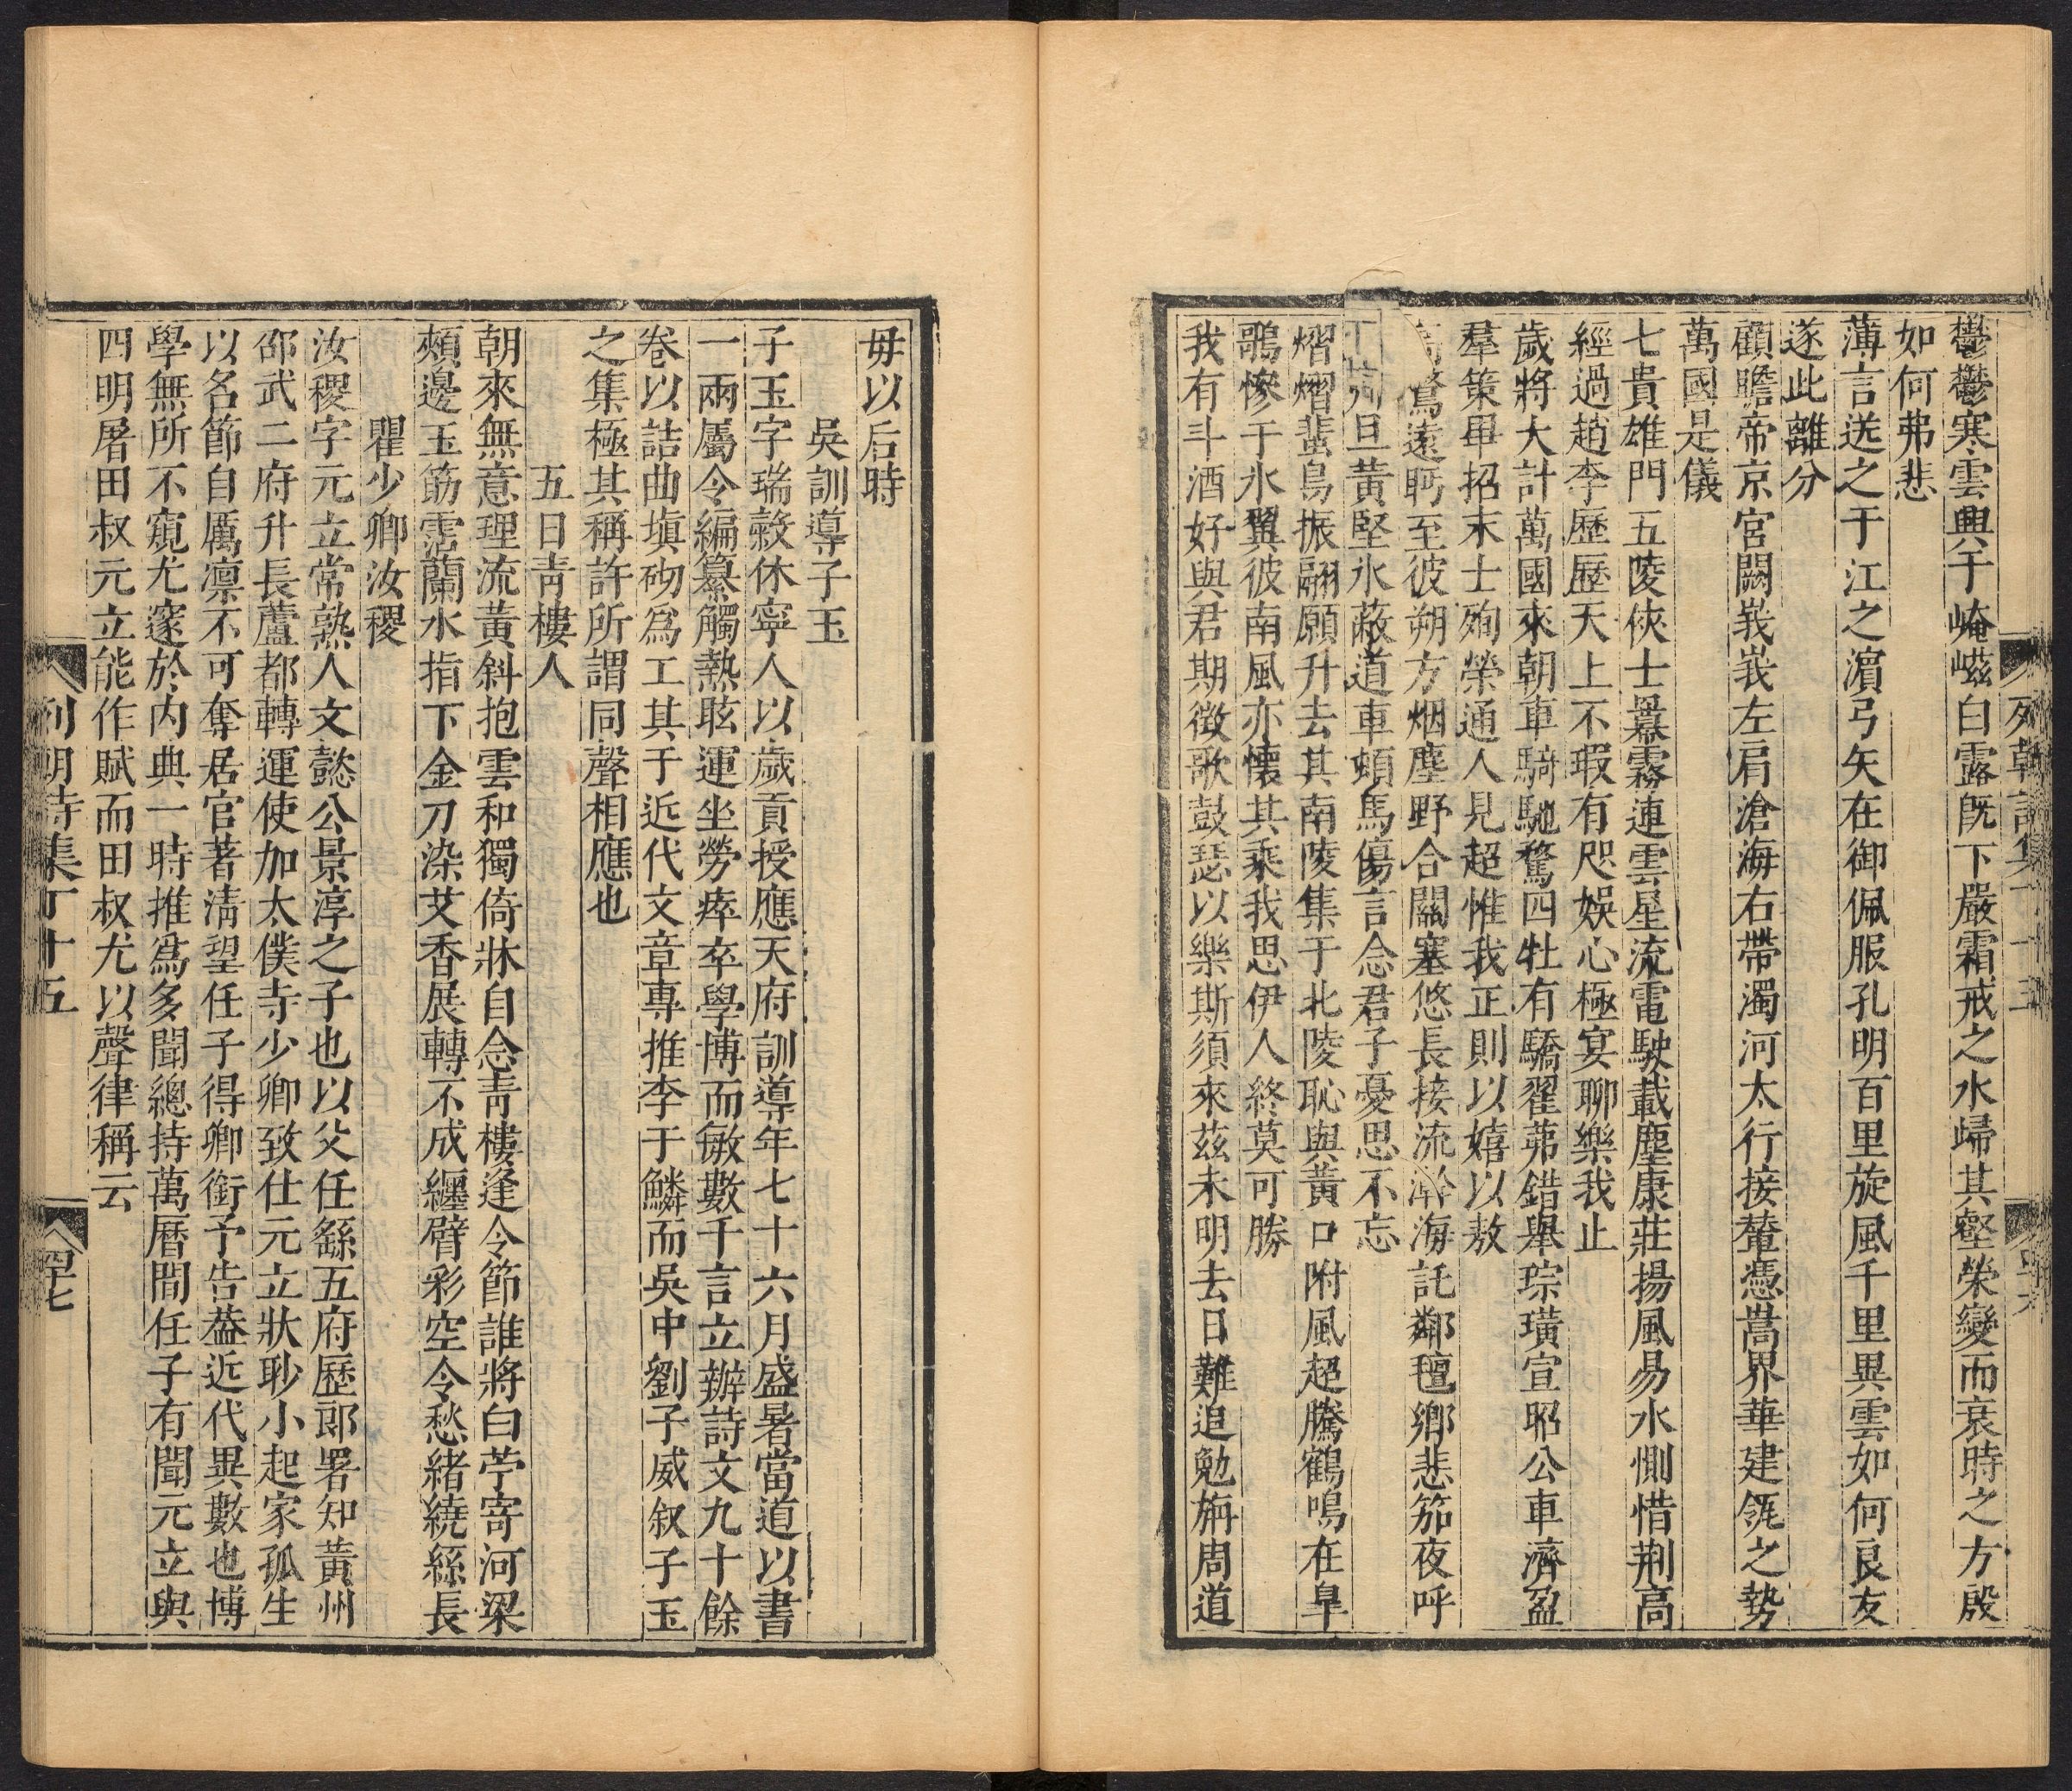 鬱鬱寒雲興于崦嵫白露旣下嚴霜戒之水歸其壑榮變而衰時之方殷
如何弗悲
薄言送之于江之濵弓矢在御佩服孔明百里旋風千里異雲如何良友
遂此離分
顧瞻帝京宮闕峩峩左肩滄海右帶濁河太行接輦憑嵩界華建瓴之勢
萬國是儀
七貴雄門五陵俠士曓霧連雲星流電駛載塵康莊揚風易水惻惜荆高
經過趙李歷歷天上不瑕有咫娛心極宴聊樂我止
歲將大計萬國來朝車騎馳騖四牡有驕翟茀錯舉琮璜宣昭公車濟盈
羣策畢招末士殉榮通人見超惟我正則以嬉以敖
騖遠眄至彼朔方烟塵野合關塞悠長接流瀚海託鄰氊鄉悲笳夜呼
旦黃堅氷蔽道車頓馬傷言念君子憂思不忘
熠熠蜚鳥振翮願升去其南陵集于北陵恥與黃口附風超騰鶴鳴在皐
鶚慘于氷翼彼南風亦懷其乘我思伊人終莫可勝
我有斗酒好與君期徴歌鼓瑟以樂斯須來茲未明去日難追勉旃周道
列朝詩集丁十五
四十六
毋以后時
吳訓導子玉
子玉字瑞穀休寧人以歲貢授應天府訓導年七十六月盛暑當道以書
一兩屬令編纂觸熱眩運坐勞瘁卒學博而敏數千言立辦詩文九十餘
卷以詰曲塡砌爲工其于近代文章專推李于鱗而吳中劉子威叙子玉
之集極其稱許所謂同聲相應也
五日靑樓人
朝來無意理流黃斜抱雲和獨倚牀自念靑樓逢令節誰將白苧寄河梁
頰邊玉筯霑蘭水指下金刀染艾香展轉不成纒臂彩空令愁緖繞絲長
瞿少卿汝稷
汝稷字元立常熟人文懿公景淳之子也以父任繇五府歷郎署知黃州
邵武二府升長蘆都轉運使加太僕寺少卿致仕元立狀眇小起家孤生
以名節自厲凛不可奪居官著淸望任子得卿銜予告葢近代異數也博
學無所不窺尤邃於内典一時推爲多聞總持萬曆間任子有聞元立與
四明屠田叔元立能作賦而田叔尤以聲律稱云
列朝詩集丁十五
四十七